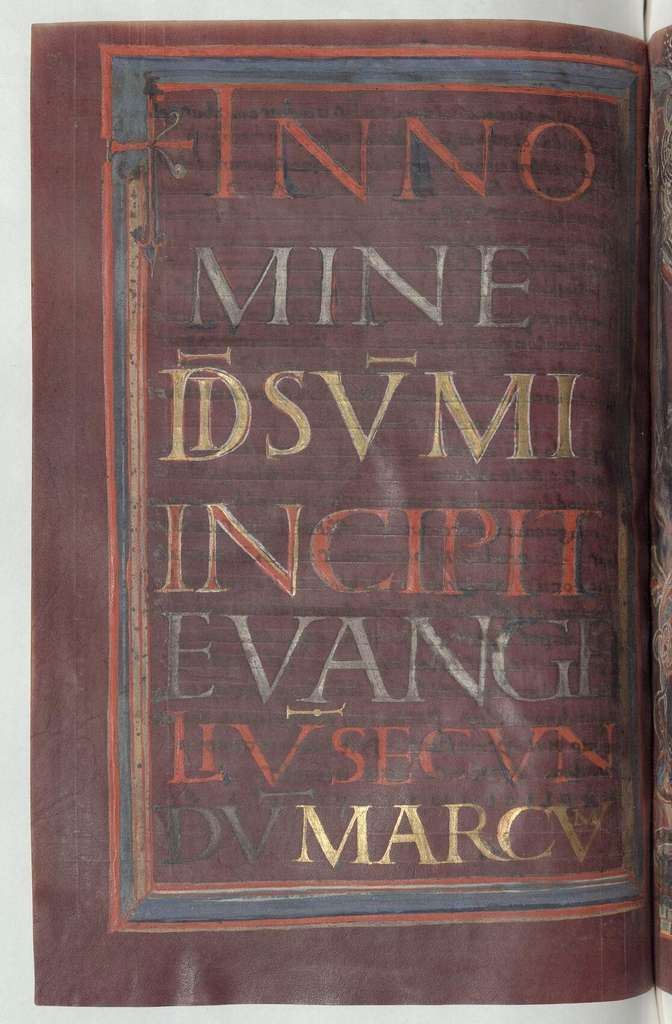 INNO
MINE
D̄I DSV̄MI
INCIPIT
EVANGE
LIV̄ SECVN
DV̄ MARCVM